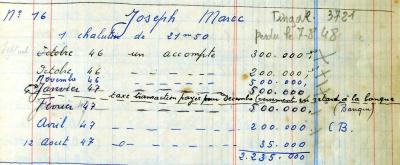 N° 16 Joseph Marec Tinduff 3721
1 chalutier de 21m50 perdu le 7-8 48
Octobre 46 un accompte 300.000
Octobre 46 200.000
Novembre 46 500.000
Janvier 47 500.000
taxe transaction payée pour décembre seulement en retard à la banque
Février 47 500.000 (Banque)
Avril 47 200.000 (B.
12 Aout 47 35.000
2.235.000